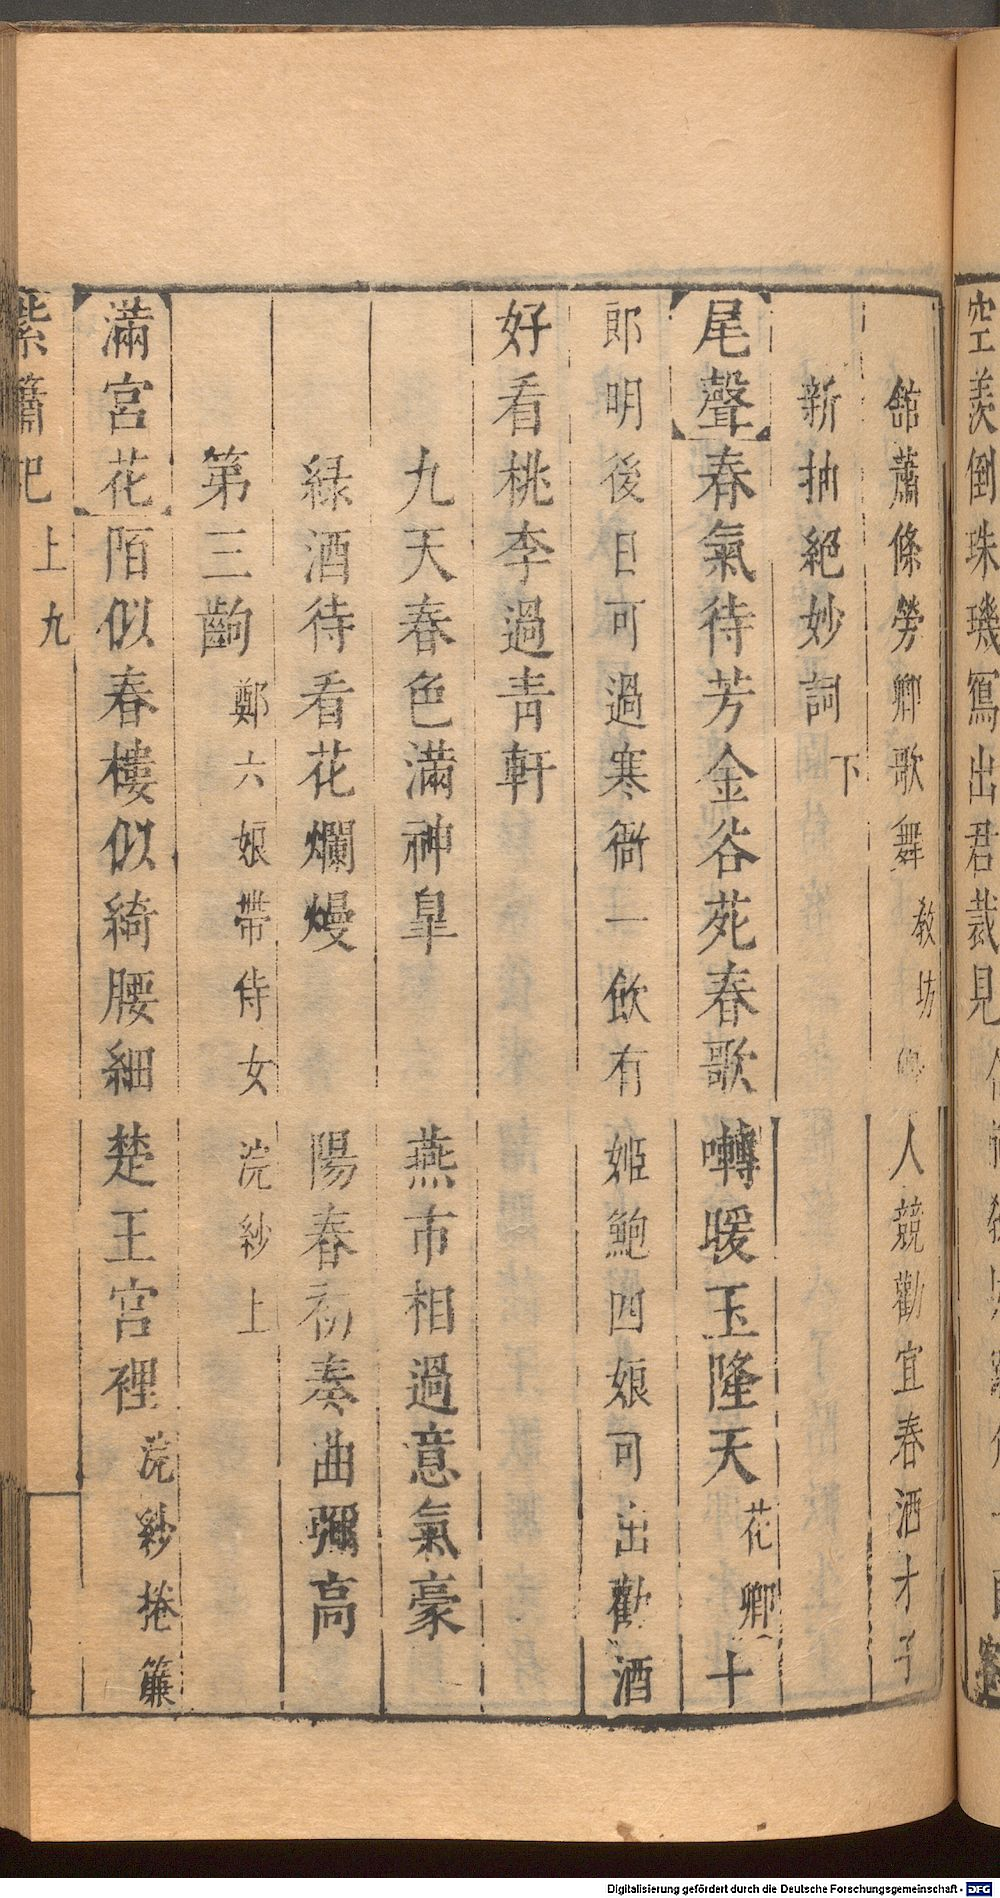 空羨倒珠璣寫出君裁見
館蕭條勞卿歌舞教坊卿人競勸宜春酒才子
新抽絕妙詞下
尾聲春氣待芳金谷苑春歌囀暖玉隆天花卿十
郎明後日可過寒衙一飲有姬鮑四娘可出勸酒
好看桃李過青軒
九天春色滿神皐 燕市相過意氣豪
緑酒待看花爛熳 陽春初奏曲彌高
第三齣鄭六娘帶侍女浣紗上
滿宮花陌似春樓似綺腰細楚王宮裡浣紗捲簾
紫簫記 上 九
Digitalisierung gefördert durch die Deutsche Forschungsgemeinschaft - DFG